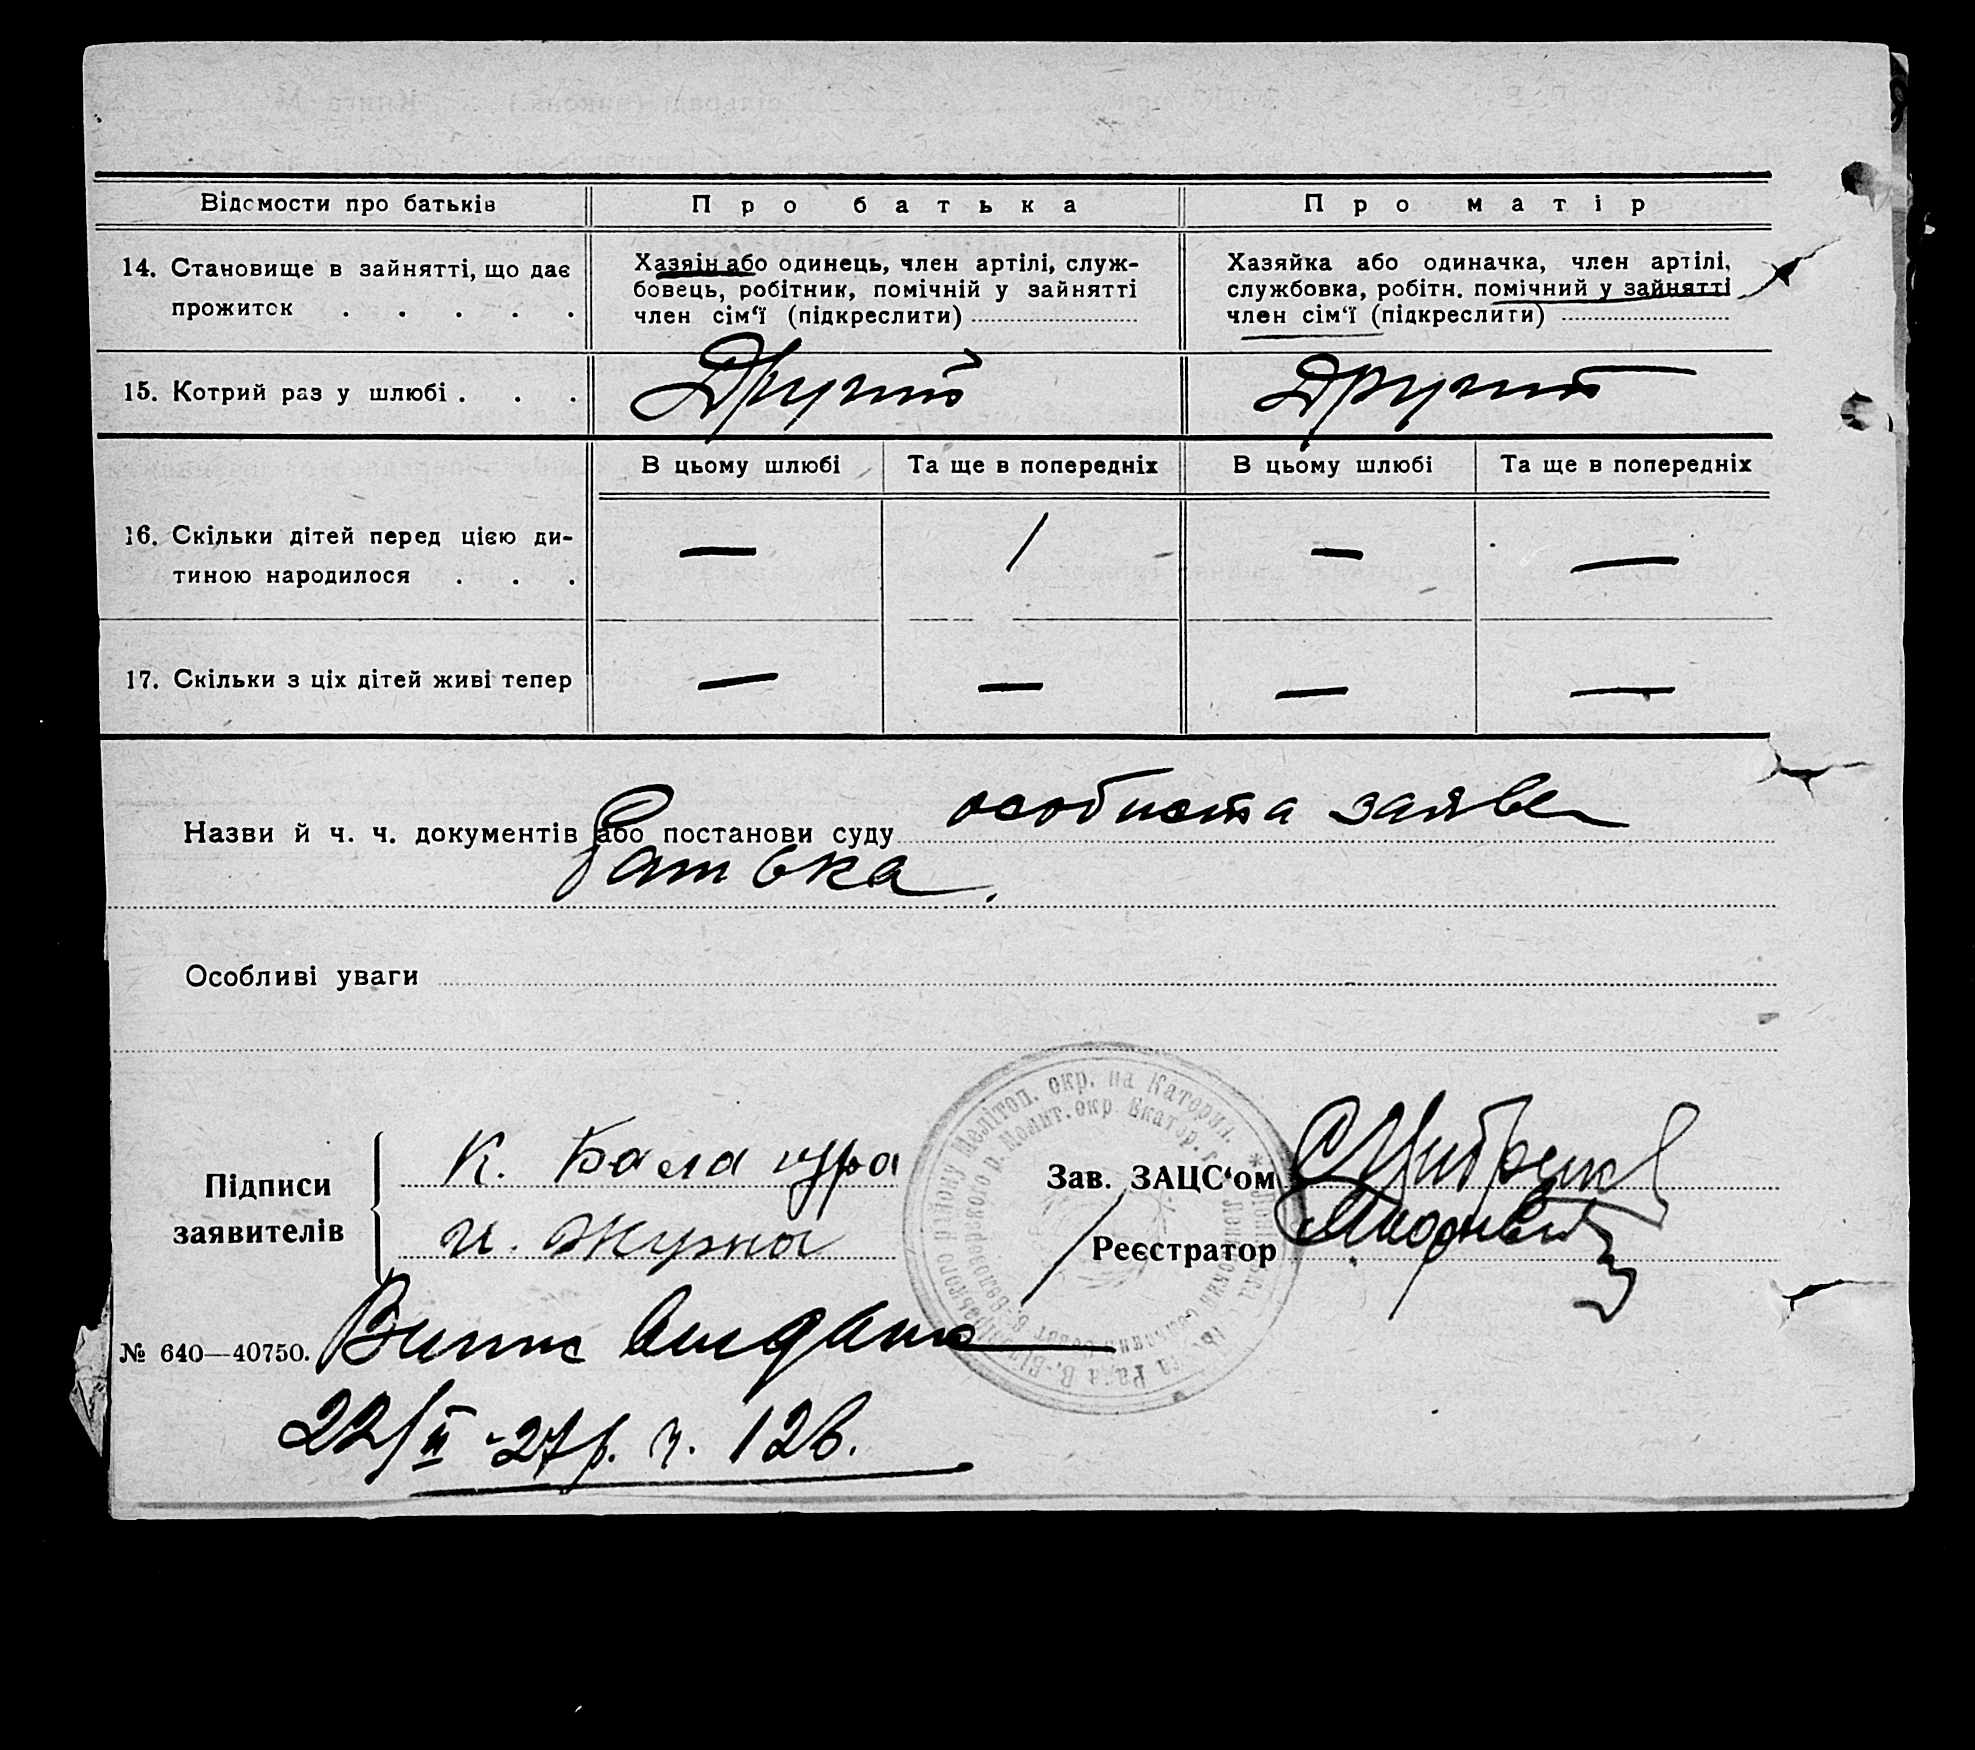 Відомости про батьків
Про батька
Про матір
14. Становище в зайнятті, що дає
прожиток . . . . .
Хазяін або одинець, член артілі, служ-
бовець, робітник, помічній у зайнятті
член сім'ї (підкреслити)
Хазяйка або одиначка, член артілі,
службовка, робітн. помічний у зайнятті
член сім'ї (підкреслити)
15. Котрий раз у шлюбі . . .
Другий
Другий
В цьому шлюбі
Та ще в попередніх
В цьому шлюбі
Та ще в попередніх
16. Скільки дітей перед цією ди-
тиною народилося . . .
— / — —
17. Скільки з ціх дітей живі тепер
— — — —
Назви й ч. ч. документів або постанови суду особиста заява
батька.
Особливі уваги
Підписи
заявителів
К. Балацура
И. Журна
Зав. ЗАЦС'ом
Реєстратор
№ 640—40750.
Випис видано
22/II-27р. ч. 128.